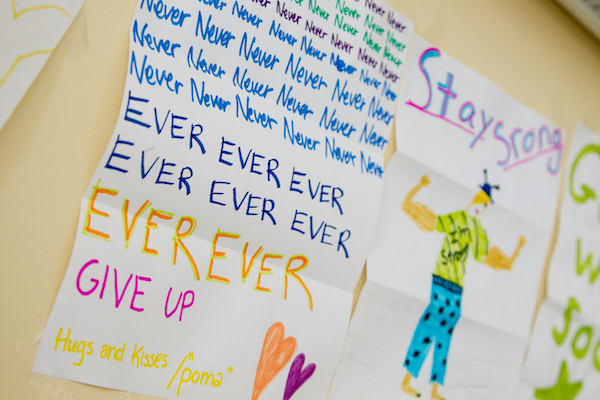 Never Never
Never Never Never Never
Never Never Never Never Never
Never Never Never Never Never Never
Never Never Never Never Never Never
Never Never Never Never Never Never
EVER EVER EVER
EVER EVER EVER
EVER EVER
GIVE UP
Hugs and Kisses /"poma"
Stay srong
I'm
strong
G
w
soo